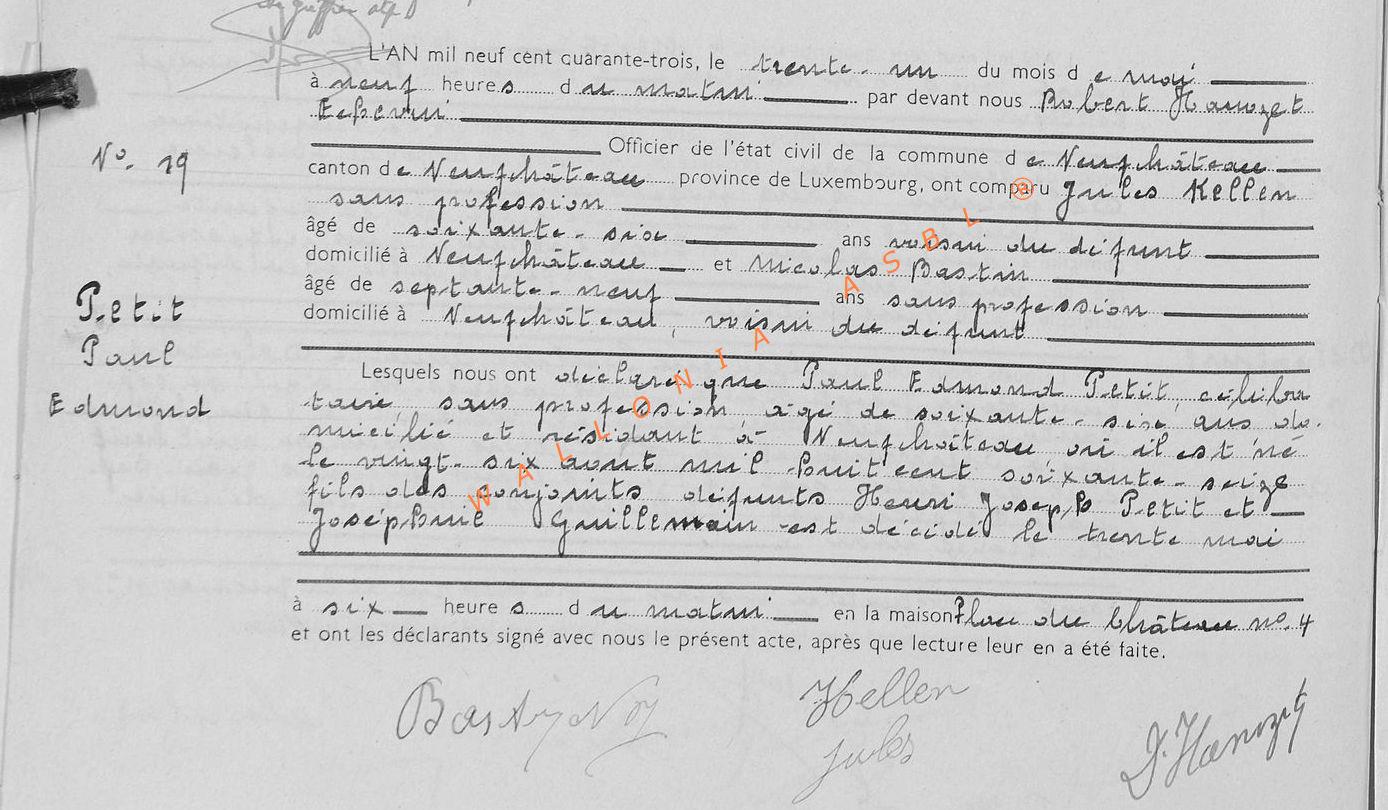 L'AN mil neuf cent quarante-trois, le trente-un du mois de mai
à neuf heures du matin par devant nous Robert Hanozet
Echevin
Officier de l'état civil de la commune de Neufchâteau
N°. 19
canton de Neufchâteau province de Luxembourg, ont comparu Jules Kellen
sans profession
âgé de soixante-six ans voisin du défunt
domicilié à Neufchâteau et Nicolas Bastin
âgé de septante-neuf ans sans profession
domicilié à Neufchâteau, voisin du défunt
Petit
Paul
Edmond
Lesquels nous ont déclaré que Paul Edmond Petit, céliba
taire, sans profession âgé de soixante-six ans do.
micilié et résidant à Neufchâteau où il est né
le vingt-six août mil huit cent soixante-seize
fils des conjoints défunts Henri Joseph Petit et
Joséphine Guillemain est décédé le trente mai
à six heures du matin en la maison Place du Château n°. 4
et ont les déclarants signé avec nous le présent acte, après que lecture leur en a été faite.
Kellen
Jules
Hanozet
WALLONIA ASBL @